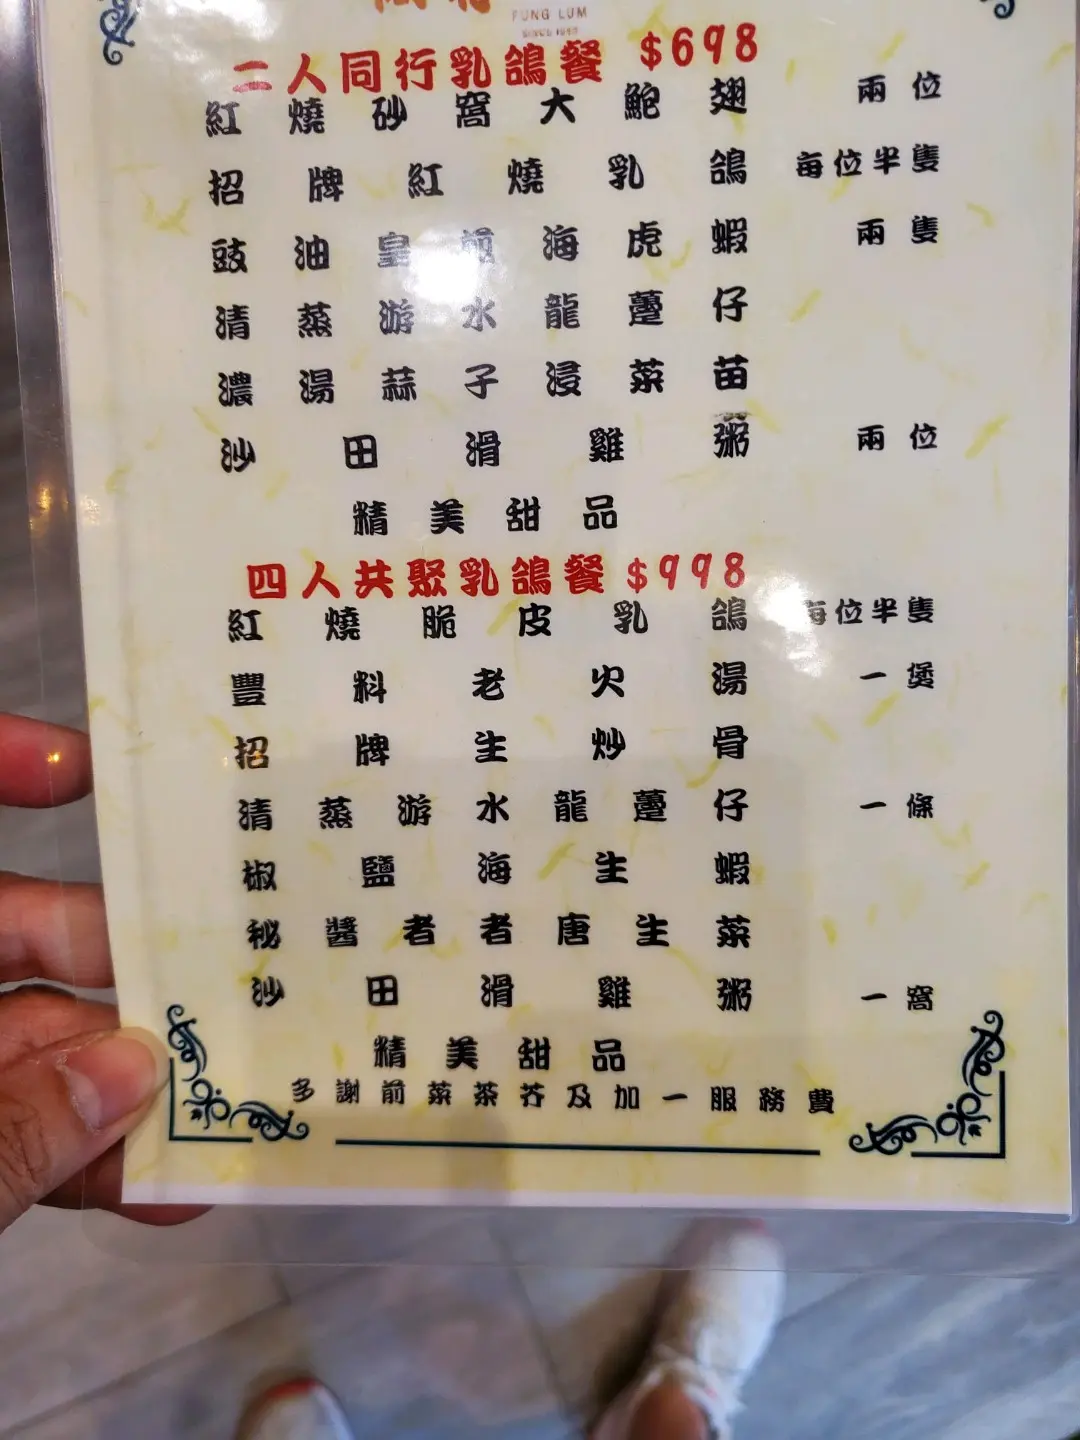 FUNG LUM
SINCE 19
二人同行乳鴿餐 $698
紅燒砂窩大鮑翅 兩位
招牌紅燒乳鴿 每位半隻
豉油皇煎海虎蝦 兩隻
清蒸游水龍躉仔
濃湯蒜子浸菜苗
沙田滑雞粥 兩位
精美甜品
四人共聚乳鴿餐 $998
紅燒脆皮乳鴿 每位半隻
豐料老火湯 一煲
招牌生炒骨
清蒸游水龍躉仔 一條
椒鹽海生蝦
秘醬者者唐生菜
沙田滑雞粥 一窩
精美甜品
多謝前菜茶芥及加一服務費